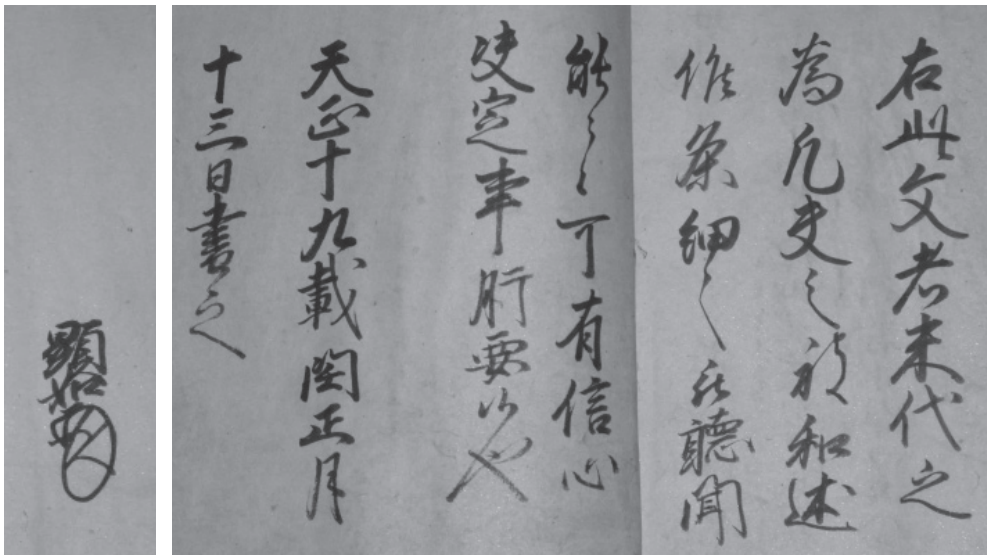 右此文者末代之
為凡夫之被和述
候条細々聽聞
能々可有信心
决定事肝要候也
天正十九載閏正月
十三日書之
顯如